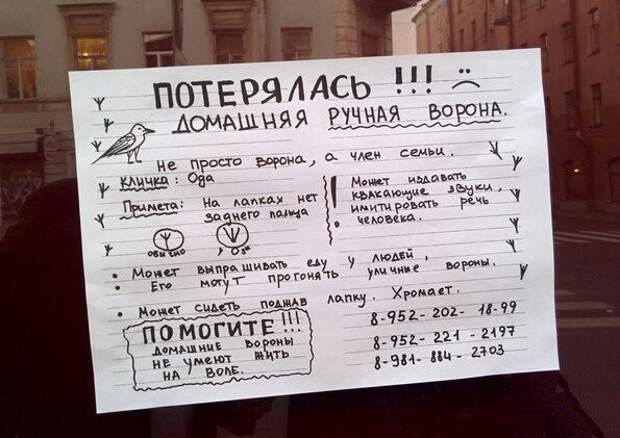 ПОТЕРЯЛАСЬ !!!
ДОМАШНЯЯ РУЧНАЯ ВОРОНА.
Не просто ворона, а член семьи.
Кличка: Ода
Примета: На лапках нет
заднего пальца
обычно
у Оды
! Может издавать
квакающие звуки,
имитировать речь
человека.
• Может выпрашивать еду у людей,
• Его могут прогонять уличные вороны.
• Может сидеть поджав лапку. Хромает.
ПОМОГИТЕ!!!
ДОМАШНИЕ ВОРОНЫ
НЕ УМЕЮТ ЖИТЬ
НА ВОЛЕ.
8-952-202-18-99
8-952-221-2197
8-981-884-2703